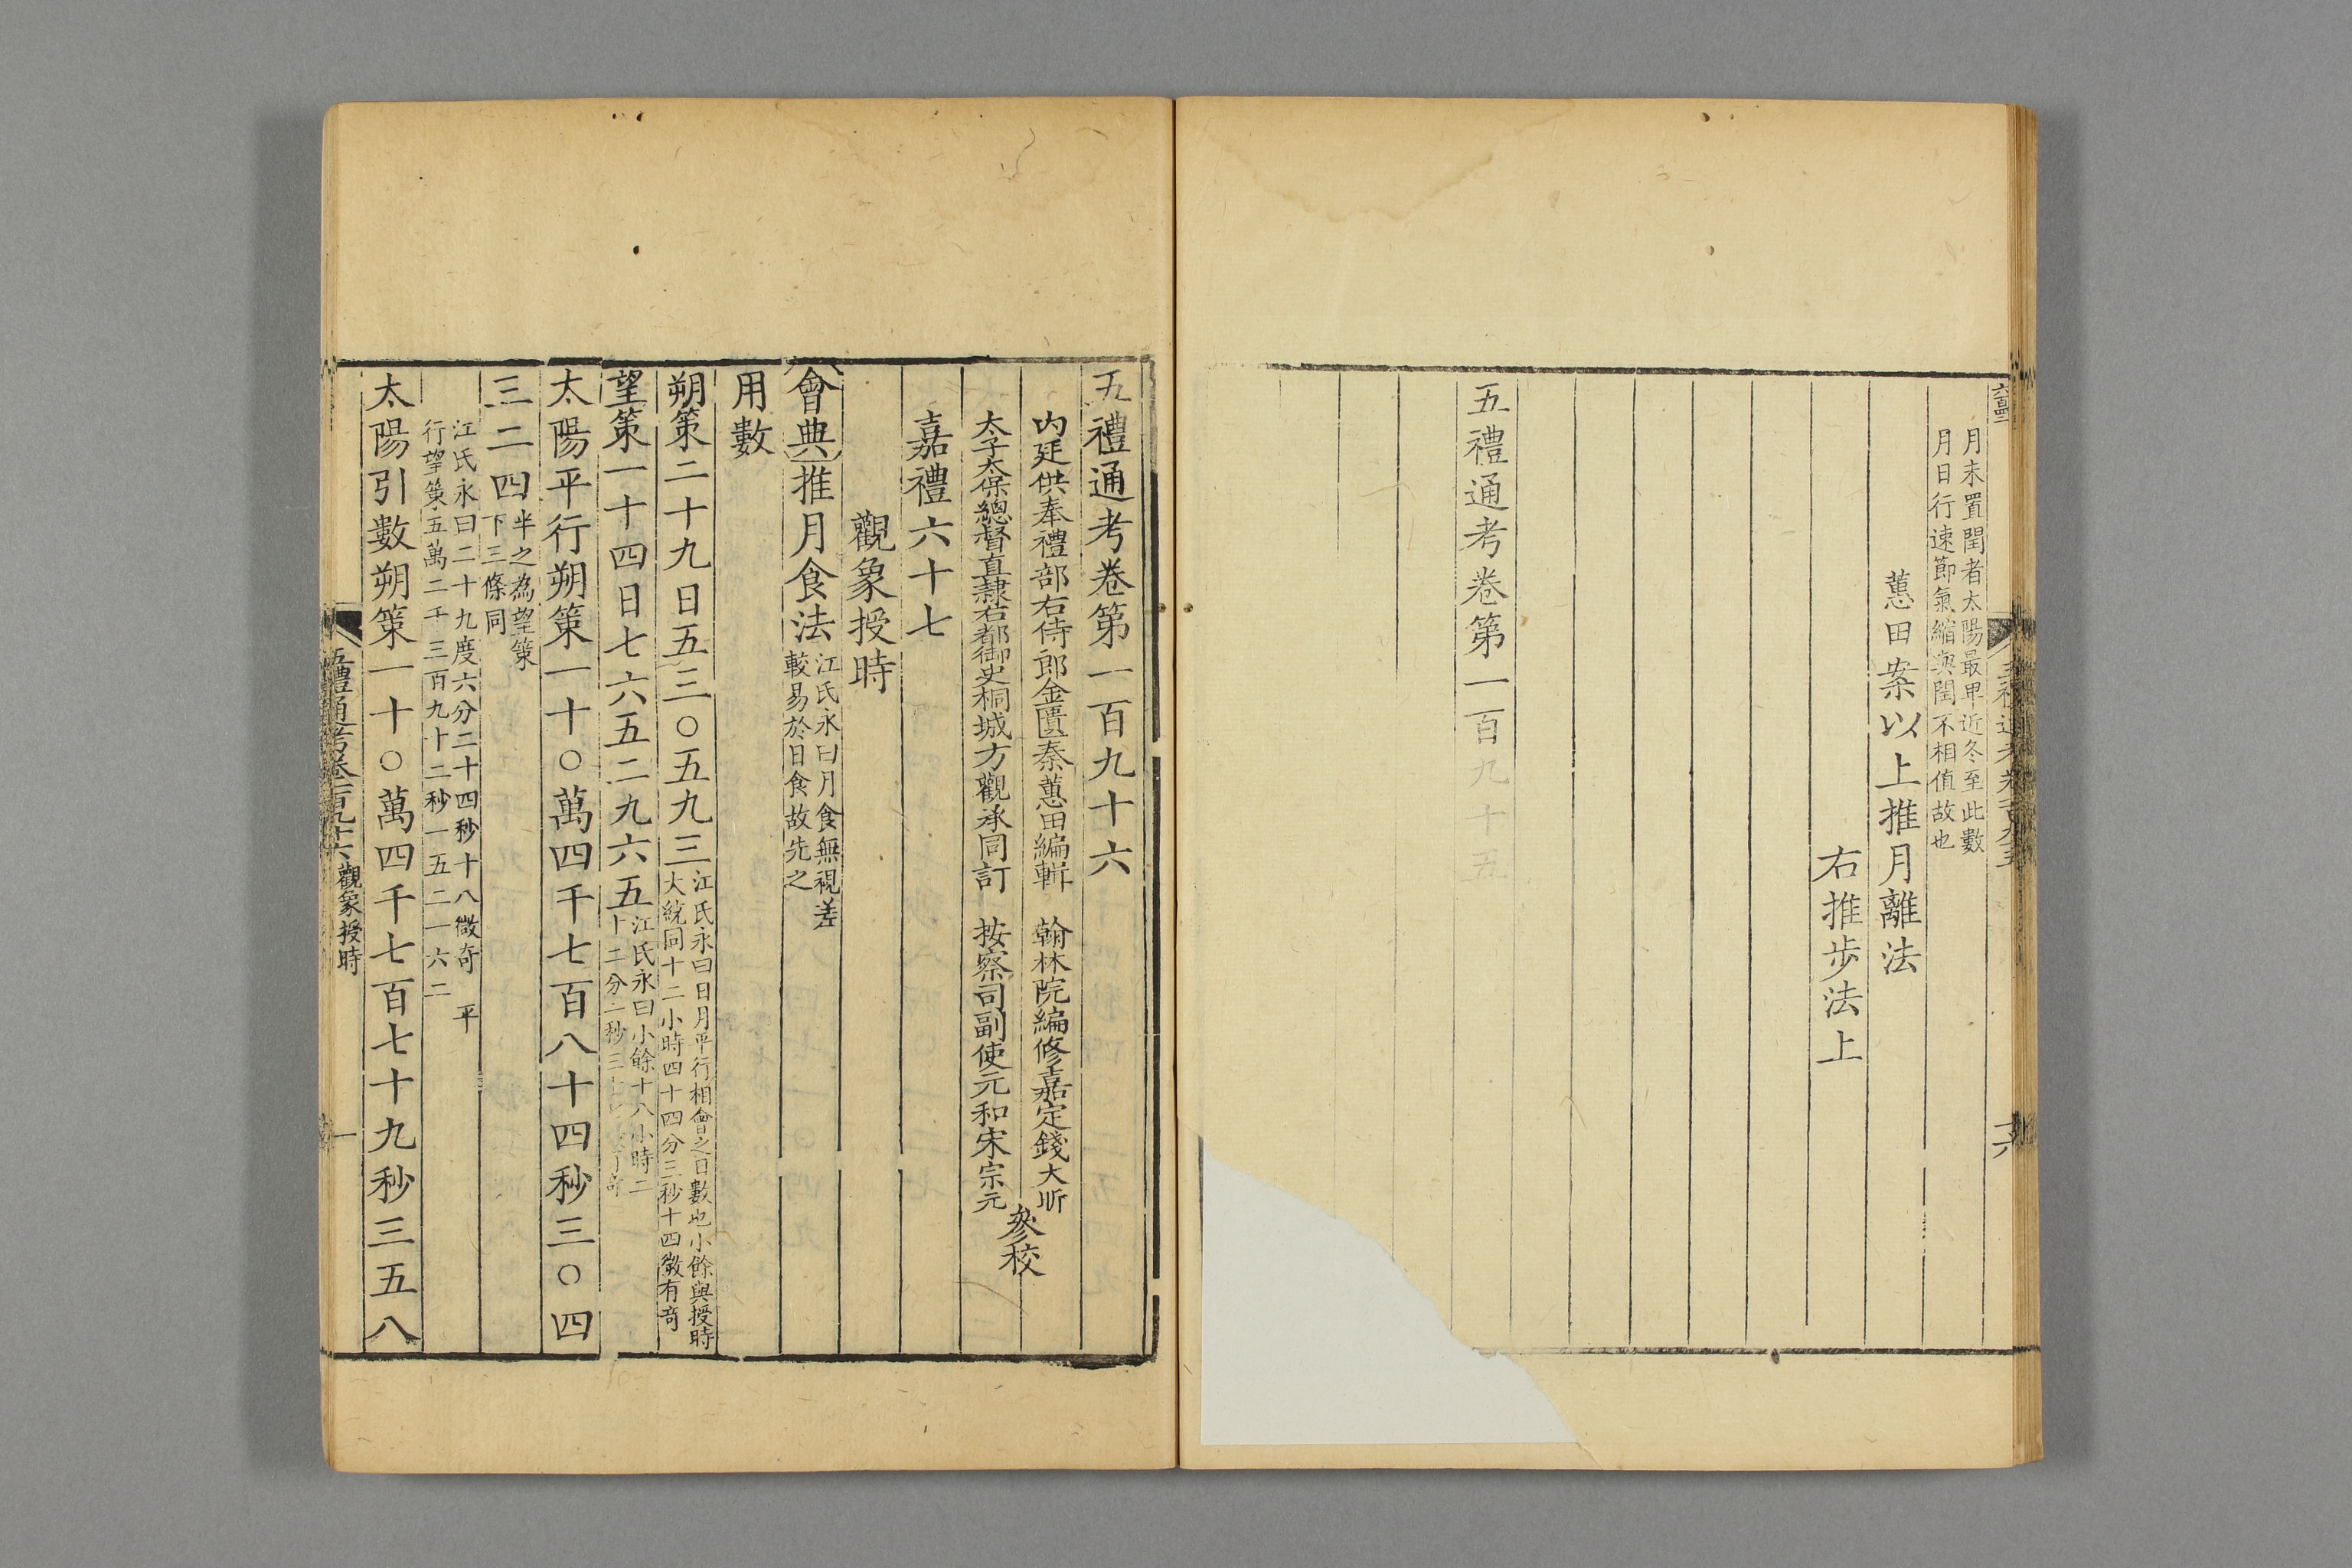 月末置閏者太陽最卑近冬至此數
月日行速節氣縮與閏不相值故也
蕙田案以上推月離法
右推步法上
五禮通考卷第一百九十五
五禮通考卷第一百九十六
內廷供奉禮部右侍郎金匱秦蕙田編輯 翰林院編修嘉定錢大昕
太子太保總督直隸右都御史桐城方觀承同訂 按察司副使元和宋宗元
參校
嘉禮六十七
觀象授時
會典推月食法
江氏永曰月食無視差
較易於日食故先之
用數
朔策二十九日五三〇五九三
江氏永曰日月平行相會之日數也小餘與授時
大統同十二小時四十四分三秒十四微有奇
望策一十四日七六五二九六五
江氏永曰小餘十八小時二
十二分二秒三十
太陽平行朔策一十〇萬四千七百八十四秒三〇四
三二四
半之為望策
下三條同
江氏永曰二十九度六分二十四秒十八微奇 平
行望策五萬二千三百九十二秒一五二一六二
太陽引數朔策一十〇萬四千七百七十九秒三五八
五禮通考卷一百九十六 觀象授時
一